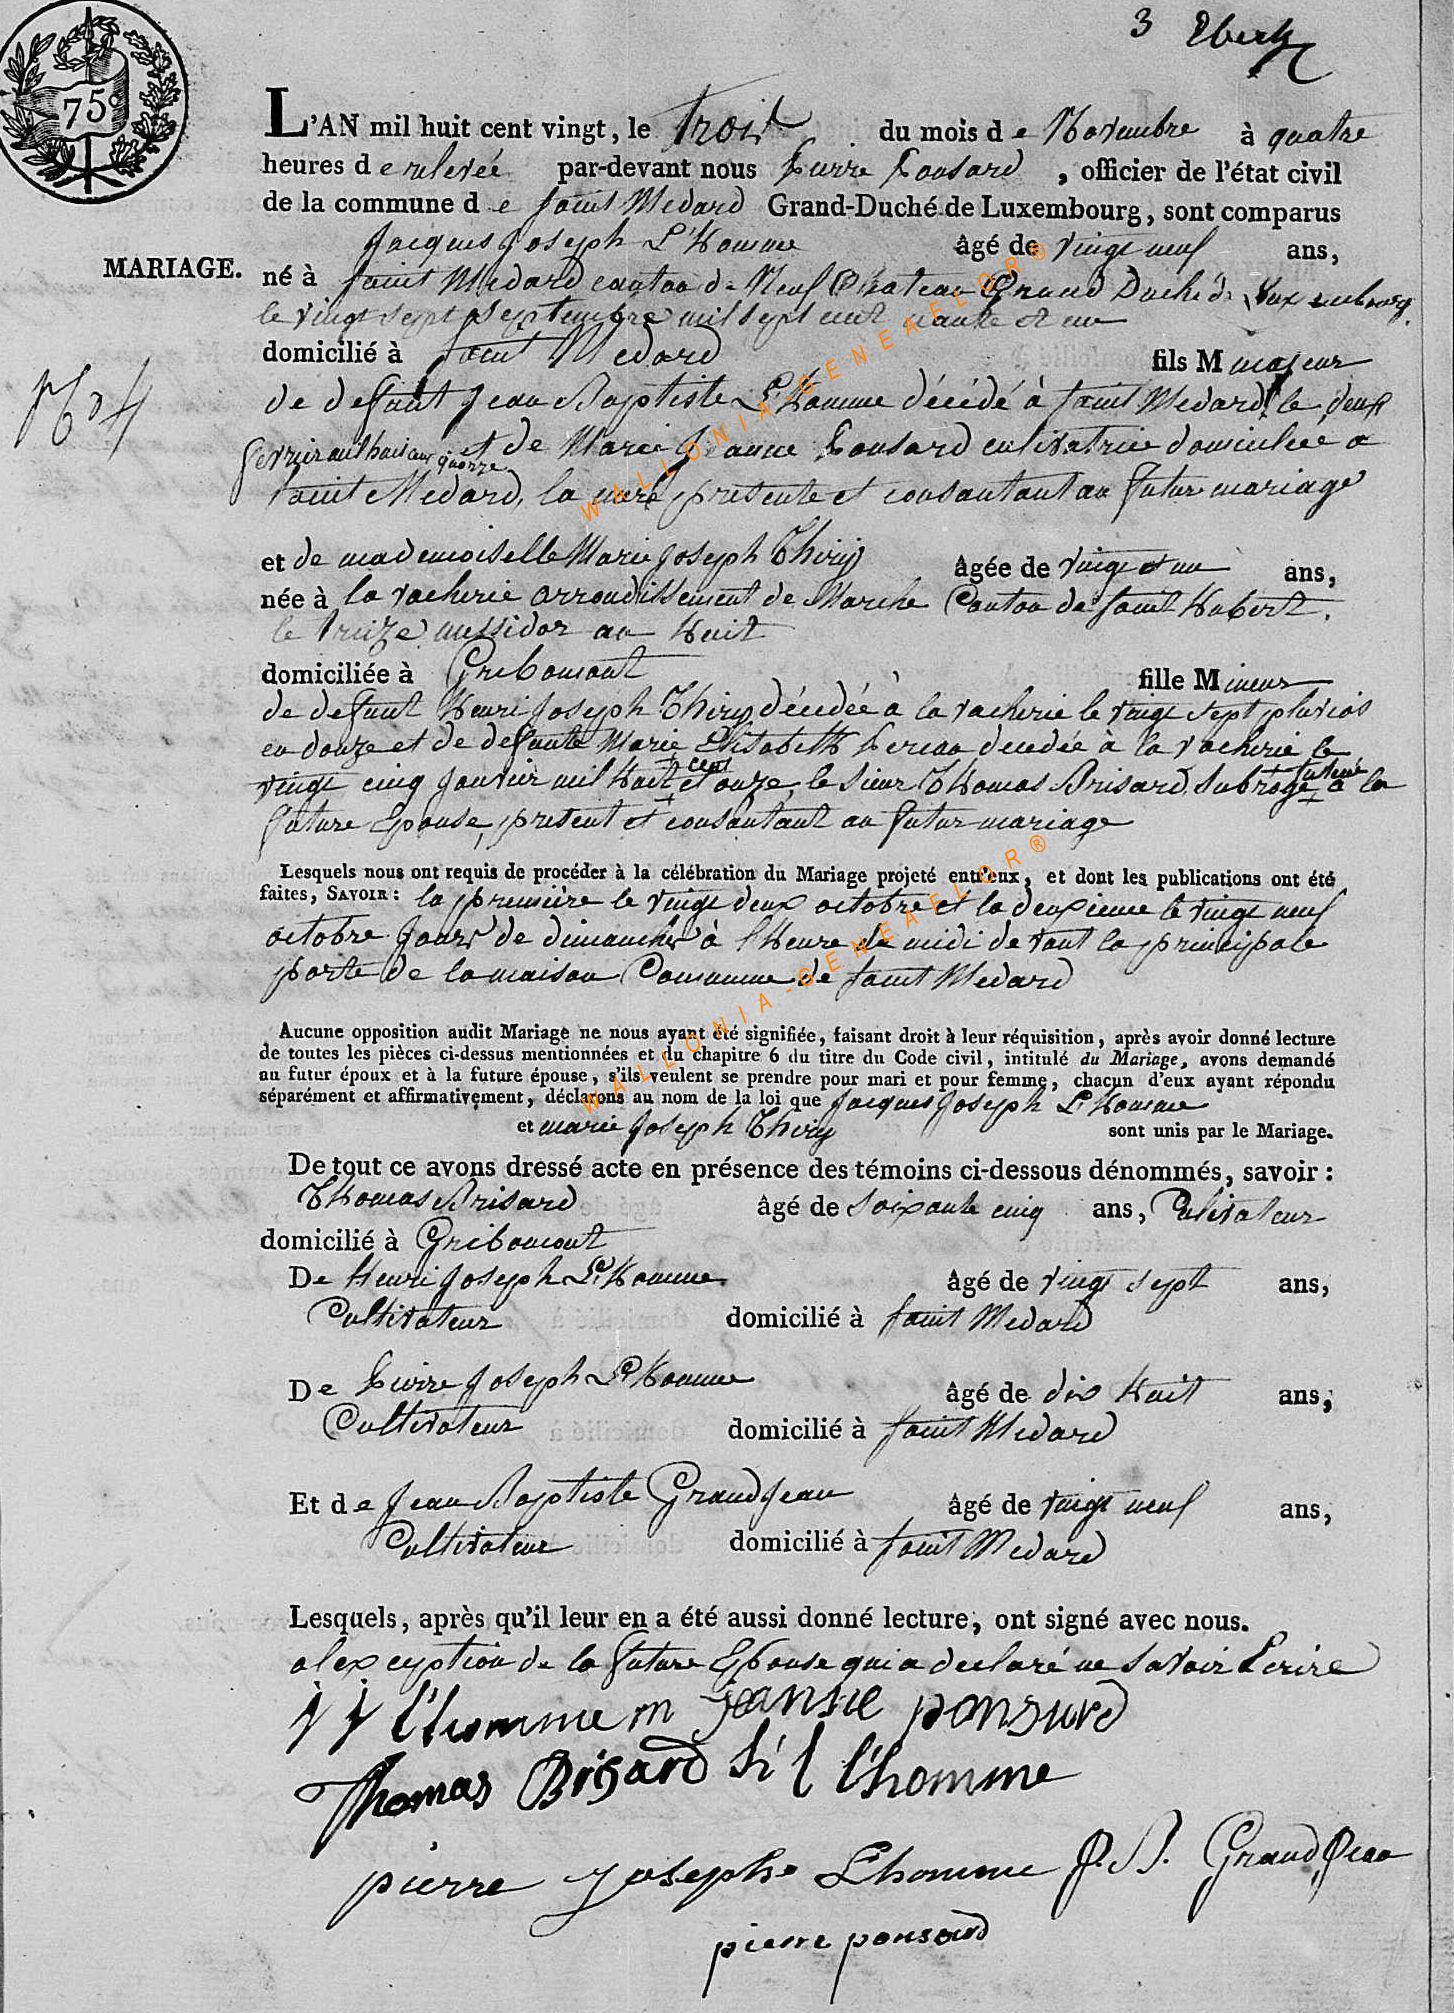 3 Ebert
75c
L'AN mil huit cent vingt, le trois du mois de Novembre à quatre
heures de relevée par-devant nous Pierre Ponsard, officier de l'état civil
de la commune de saint Medard Grand-Duché de Luxembourg, sont comparus
Jacques Joseph L'Homme âgé de vingt neuf ans,
MARIAGE.
né à saint Medard canton de Neuf Château Grand Duché de Luxembourg
le vingt sept septembre mil sept cent nante et un
domicilié à saint Medard fils Majeur
No 4
de defunt Jean Baptiste L'Homme décédé à saint Medard le deux
fevrier mil huit cent quorze et de Marie Jeanne Ponsard cultivatrice domiciliée a
saint Medard, la mere presente et consantant au futur mariage
et de mademoiselle Marie Joseph Thiry âgée de vingt et un ans,
née à la vacherie arrondissement de Marche Canton de saint Hubert.
le treize messidor an Huit
domiciliée à Gribomont fille Mineur
de defunt Henri Joseph Thiry décédée à la vacherie le vingt sept pluvios
en douze et de defunte Marie Elisabeth Perean decedée à la vacherie le
vingt cinq janvier mil Huit cent et onze, le sieur Thomas Brisard subrogé tuteur à la
future Epouse, present et consantant au futur mariage
Lesquels nous ont requis de procéder à la célébration du Mariage projeté entr'eux, et dont les publications ont été
faites, SAVOIR: la premiere le vingt deux octobre et la deuxieme le vingt neuf
octobre jours de dimanche à l'Heure de midi devant la principale
porte de la maison Commune de saint Medard
Aucune opposition audit Mariage ne nous ayant été signifiée, faisant droit à leur réquisition, après avoir donné lecture
de toutes les pièces ci-dessus mentionnées et du chapitre 6 du titre du Code civil, intitulé du Mariage, avons demandé
au futur époux et à la future épouse, s'ils veulent se prendre pour mari et pour femme, chacun d'eux ayant répondu
séparément et affirmativement, déclarons au nom de la loi que Jacques Joseph L'Homme
et marie Joseph Thiry sont unis par le Mariage.
De tout ce avons dressé acte en présence des témoins ci-dessous dénommés, savoir:
Thomas Brisard âgé de soixante cinq ans, Cultivateur
domicilié à Gribomont
De Henri Joseph L'Homme âgé de vingt sept ans,
Cultivateur domicilié à saint Medard
De Pierre Joseph L'Homme âgé de dix Huit ans,
Cultivateur domicilié à saint Medard
Et de Jean Baptiste Grandjean âgé de vingt neuf ans,
Cultivateur domicilié à saint Medard
Lesquels, après qu'il leur en a été aussi donné lecture, ont signé avec nous.
a lexception de la future Epouse qui a declaré ne savoir Ecrire
j j l'homme m jeanne ponsard
Thomas Brisard h j l'homme
pierre Josephe Lhomme J. B. Grandjean
pierre ponsard
WALLONIA-GENEAELOR®
WALLONIA-GENEAELOR®